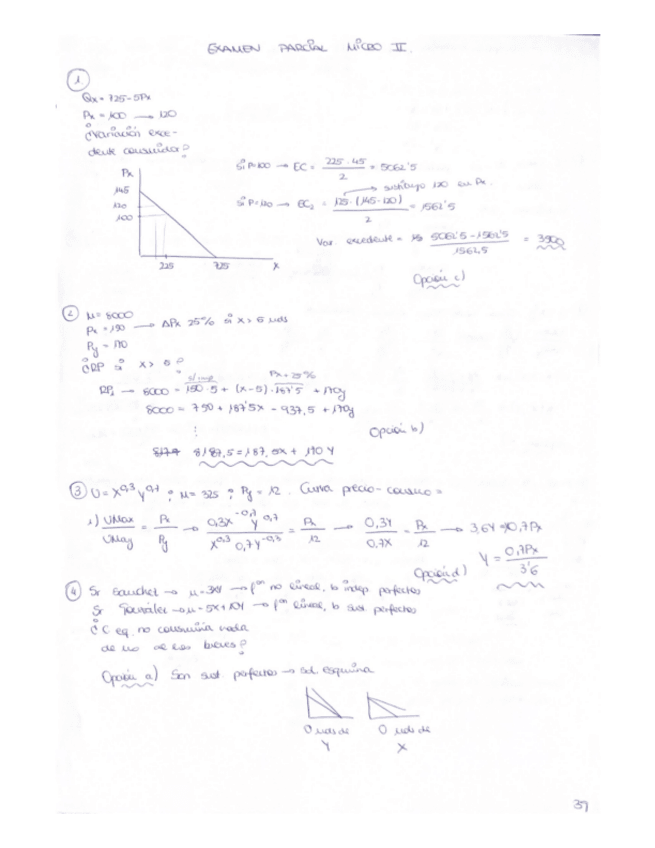 EXAMEN PARCIAL MICRO II.
1
Qx = 725 - 5Px
Px = 100 → 120
¿Variación exce-
dente consumidor?
Px
145
120
100
225 725 X
Si P=100 → EC = 225 · 45 / 2 = 5062'5
sustituyo 120 en Px.
Si P=120 → EC2 = 125 · (145-120) / 2 = 1562'5
Var. excedente = 5062'5 - 1562'5 / 1562,5 = 3500
Opción c)
2 M = 8000
Px = 150 → ΔPx 25% si x > 5 uds
Py = 170
¿RP si x > 5?
s/ imp Px + 25%
RP1 → 8000 = 150 · 5 + (x-5) · 187'5 + 170y
8000 = 750 + 187'5x - 937,5 + 170y
⋮
Opción b)
8187,5 = 187,5x + 170 Y
3 U = X^0,3 Y^0,7 ; M = 325 ; Py = 12. Curva precio-consumo =
1) UMax / UMay = Px / Py → 0,3x^-0,7 y^0,7 / x^0,3 0,7y^-0,3 = Px / 12 → 0,3Y / 0,7X = Px / 12 → 3,6Y = 0,7Px
Y = 0,7Px / 3'6
Opción d)
4 Sr Sánchez → μ = 3XY → fon no lineal, b indep perfectos
Sr González → μ = 5X + 10Y → fon lineal, b sust perfectos
¿C eq. no consumiría nada
de uno de los bienes?
Opción a) Son sust perfectos → sol. esquina
0 uds de 0 uds de
Y X
37